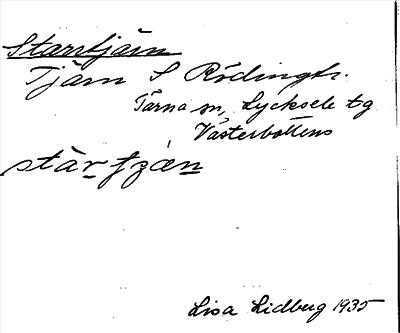 Starrtjärn
Tjärn S Rödingh.
Tärna sn, Lycksele tg
Västerbottens
Lisa Lidberg 1935